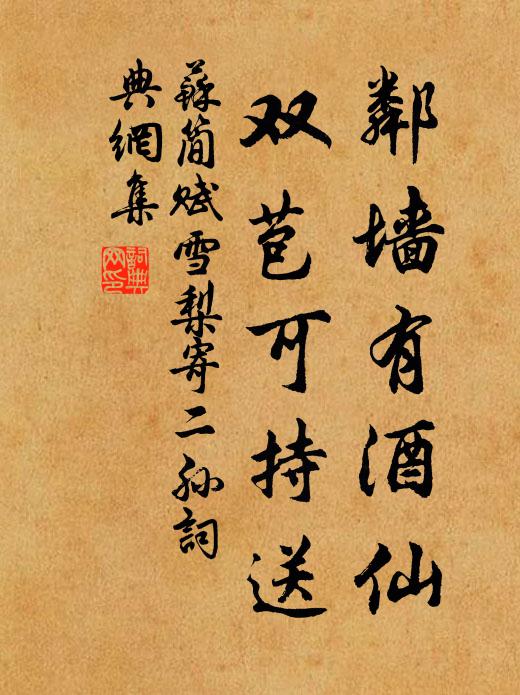 鄰墙有酒仙
双苞可持送
蘇簡赋雪梨寄二孙詞
典網集
詞典
网印